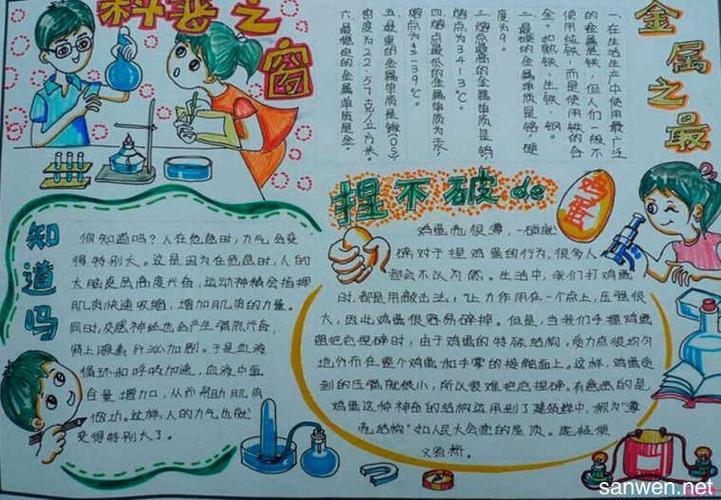 科学之窗
金属之最
一.在生活生产中使用最广泛
的金属是铁,但人们一般不
使用纯铁,而是使用铁的合
金,如熟铁、生铁、钢。
二.最硬的金属单质是铬,硬
度为9。
三.熔点最高的金属单质是钨,
熔点为3413℃。
四.熔点最低的金属单质为汞,
熔点为-39℃。
五.最重的金属单质是锇(Os)
密度为22.57克/立方米。
六.最稳定的金属单质是金。
知道吗
你知道吗?人在危急时,力气会变
得特别大。这是因为在危急时,人的
大脑皮层高度兴奋,运动神经会指挥
肌肉快速收缩,增加肌肉的力量。
同时,交感神经也会产生强烈兴奋,
肾上腺素分泌加剧。于是血液
循环和呼吸加速,血液中氧
含量增加,从而帮助肌肉
做功。这样,人的力气也就
变得特别大了。
捏不破de
鸡蛋
鸡蛋壳很薄,一碰就
碎,对于捏鸡蛋的行为,很多人
都会不以为然。生活中,我们打鸡蛋
时,都是用敲击法,让力作用在一个点上,压强很
大,因此鸡蛋很容易碎掉。但是,当我们手握鸡蛋
想把它捏碎时,由于鸡蛋的特殊结构,受力点很均匀
地分布在整个鸡蛋和手掌的接触面上。这样,鸡蛋受
到的压强就很小,所以很难把它捏碎。有意思的是
鸡蛋这种神奇的结构应用到了建筑学中,称为“薄
壳结构”如人民大会堂的屋顶。既轻便
又省料。
sanwen.net